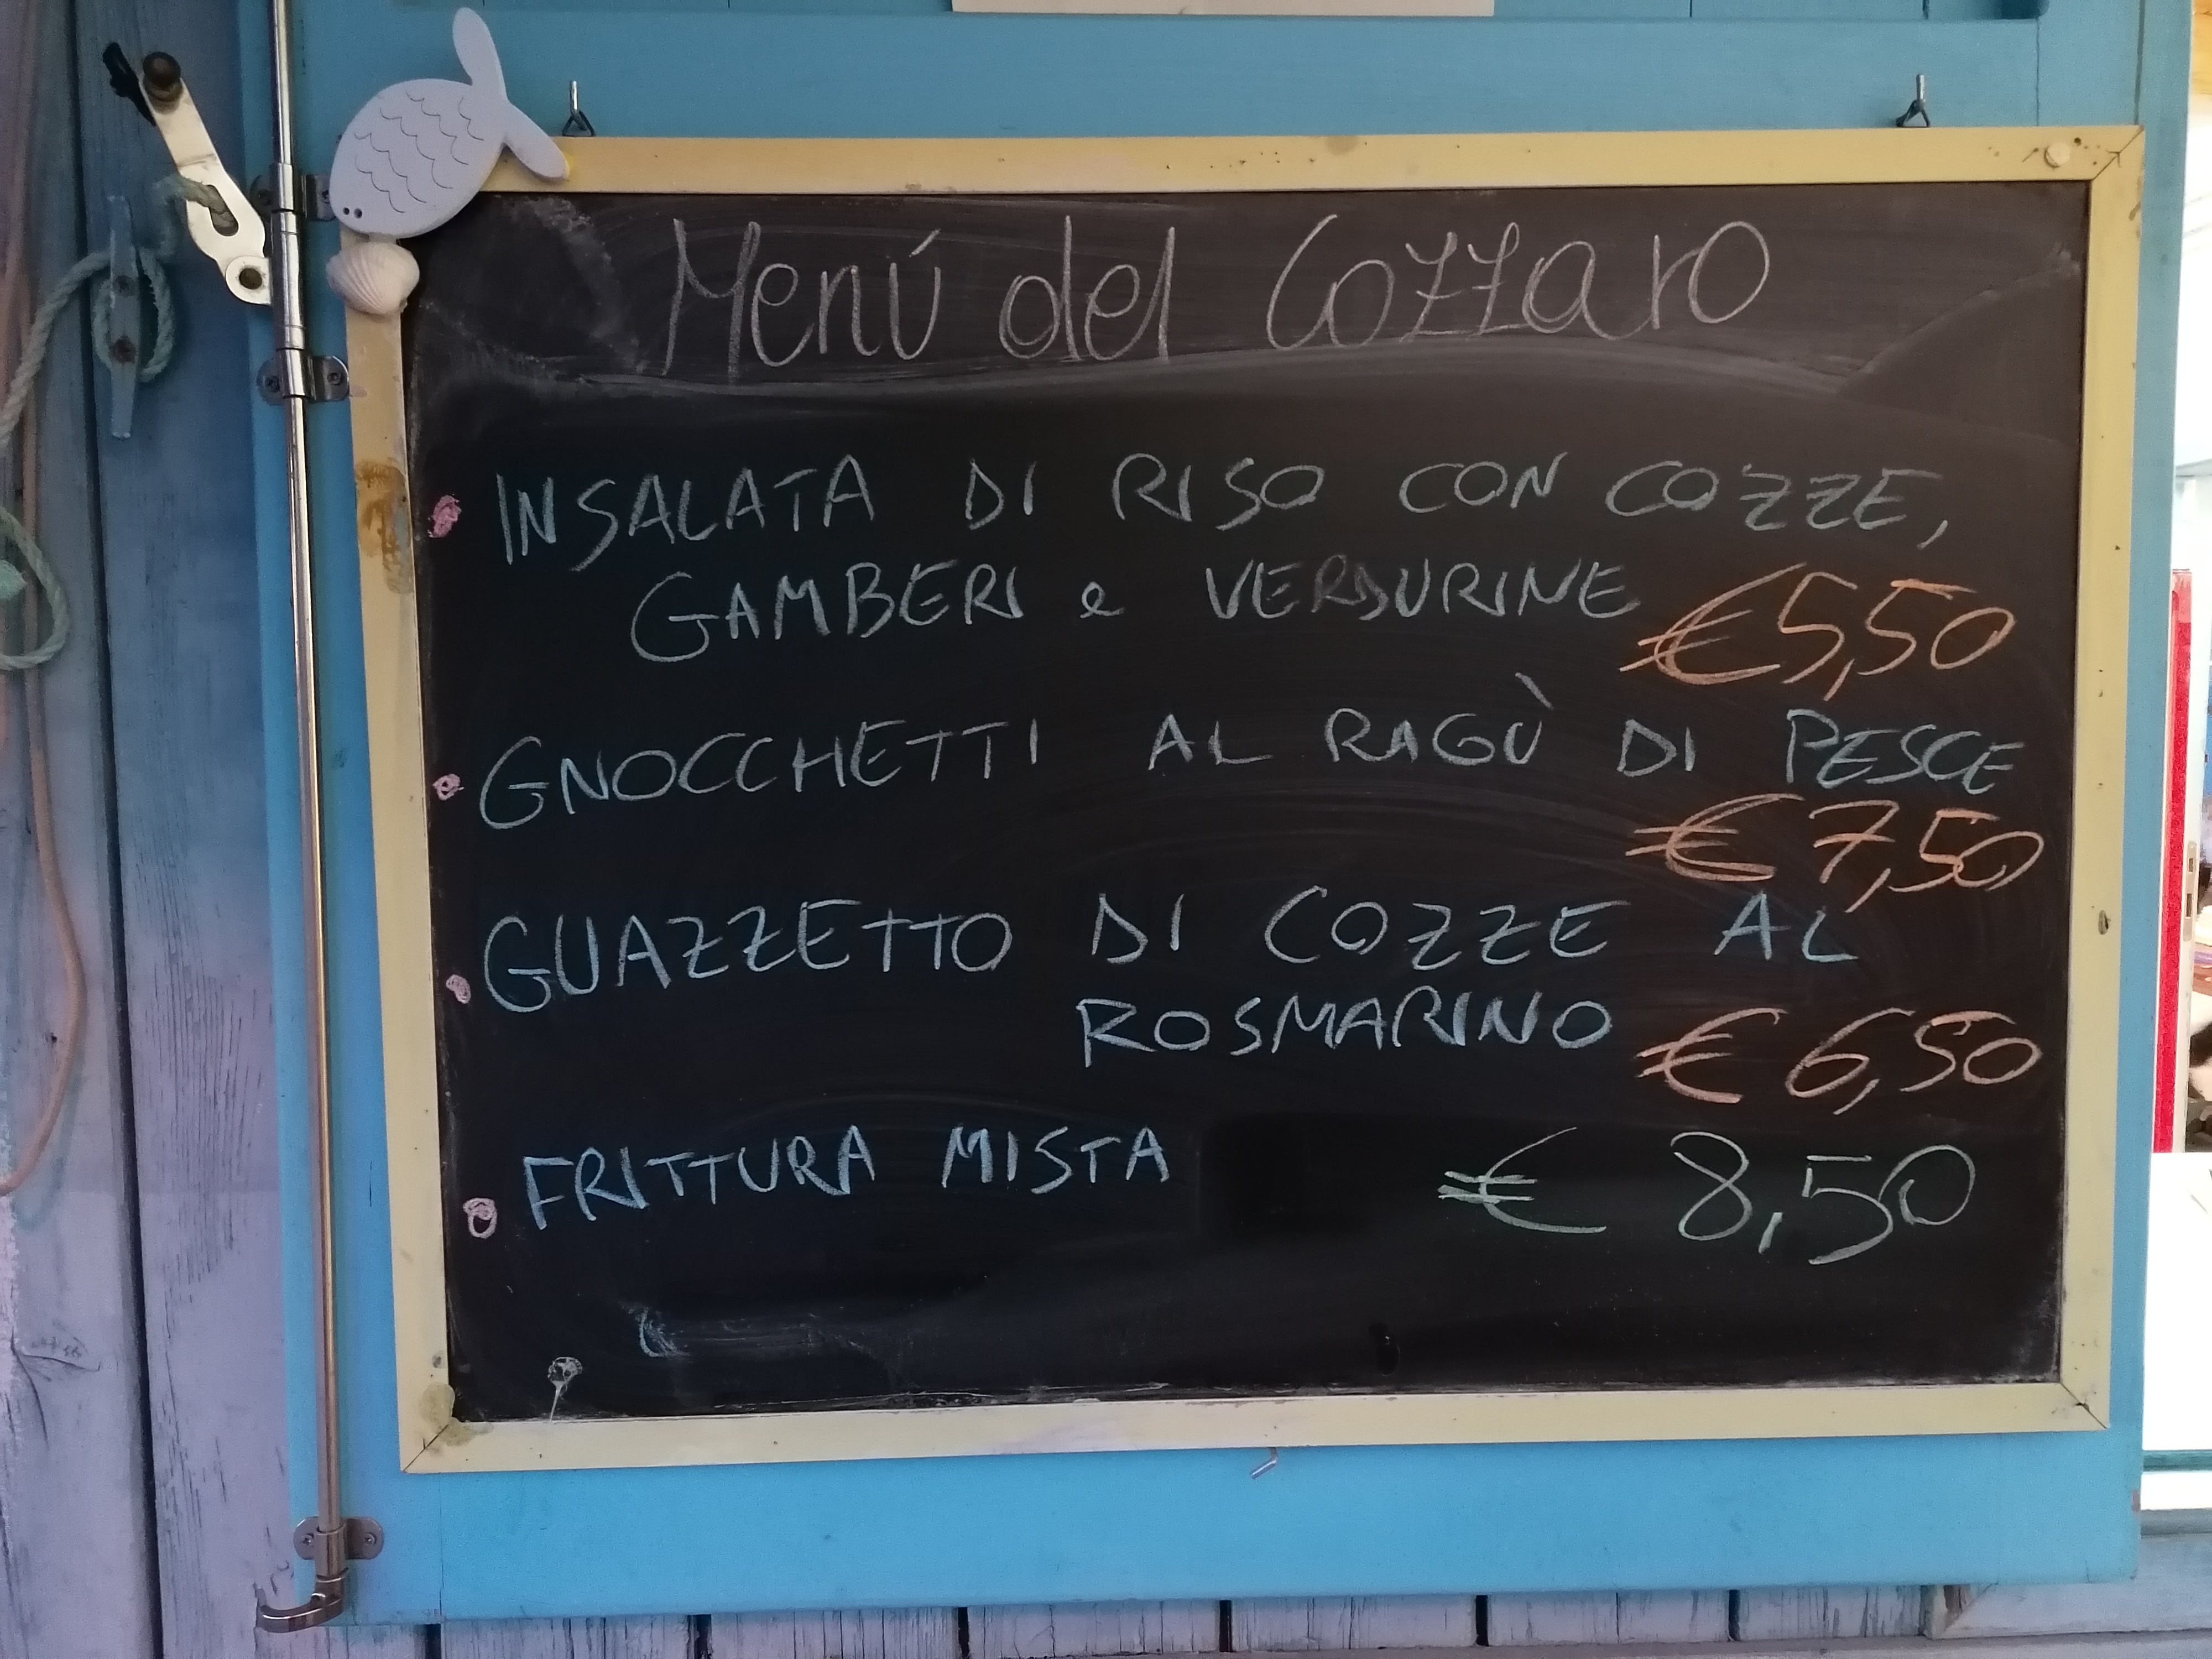 Menú del Cozzaro
INSALATA DI RISO CON COZZE,
GAMBERI e VERDURINE €5,50
GNOCCHETTI AL RAGÙ DI PESCE
€ 7,50
GUAZZETTO DI COZZE AL
ROSMARINO € 6,50
FRITTURA MISTA € 8,50